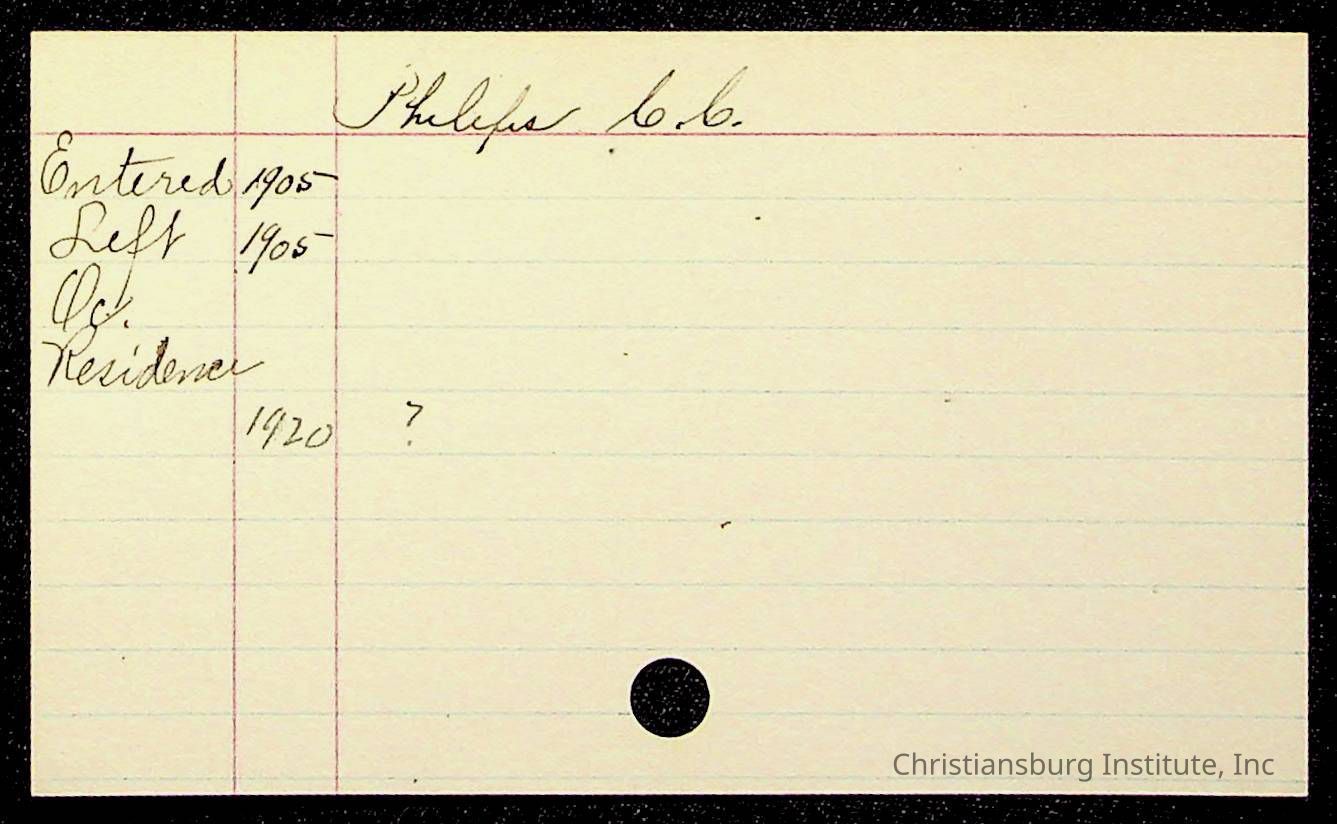 Philips C.C.
Entered 1905
Left 1905
Oc.
Residence
1920 ?
Christiansburg Institute, Inc